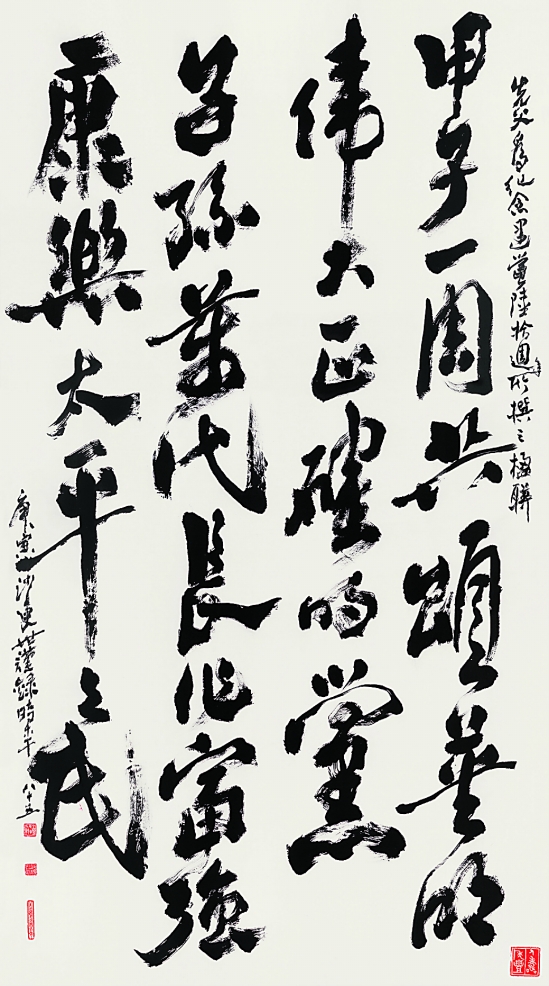 先父為紀念建黨陸拾週年所撰之楹聯
甲子一周共頌英明
偉大正確的黨
子孫萬代長作富強
康樂太平之民
庚寅沙更世謹錄時年八十五